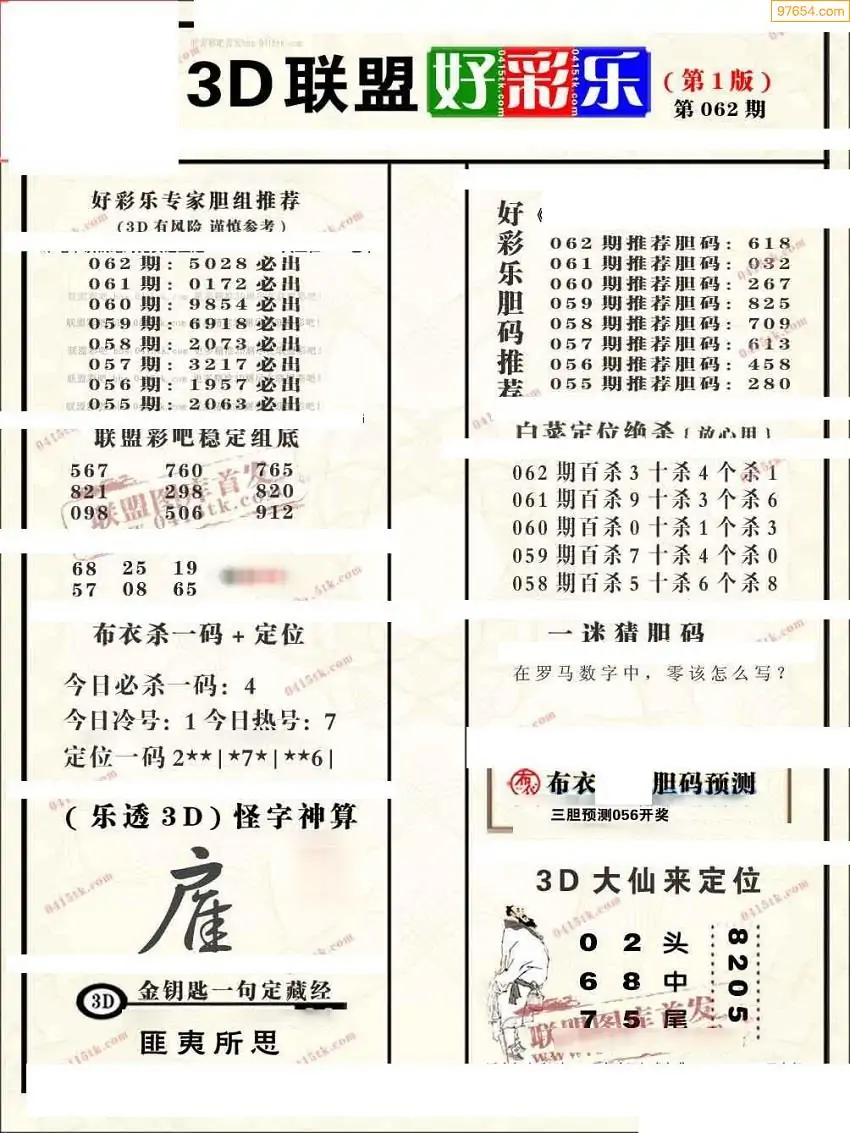 97654.com
3D联盟好彩乐
(第1版)
第062期
好彩乐专家胆组推荐
(3D有风险 谨慎参考)
062期: 5028必出
061期: 0172必出
060期: 9854必出
059期: 6918必出
058期: 2073必出
057期: 3217必出
056期: 1957必出
055期: 2063必出
联盟彩吧稳定组底
567 760 765
821 298 820
098 506 912
68 25 19
57 08 65
布衣杀一码+定位
今日必杀一码: 4
今日冷号: 1 今日热号: 7
定位一码2**|*7*|**6|
(乐透3D)怪字神算
3D
金钥匙一句定藏经
匪夷所思
好彩乐胆码推荐
062期推荐胆码: 618
061期推荐胆码: 032
060期推荐胆码: 267
059期推荐胆码: 825
058期推荐胆码: 709
057期推荐胆码: 613
056期推荐胆码: 458
055期推荐胆码: 280
白菜定位绝杀{放心用}
062期百杀3十杀4个杀1
061期百杀9十杀3个杀6
060期百杀0十杀1个杀3
059期百杀7十杀4个杀0
058期百杀5十杀6个杀8
一迷猜胆码
在罗马数字中，零该怎么写?
布衣 胆码预测
三胆预测056开奖
3D大仙来定位
0 2头
6 8中
7 5尾
8205
联盟图库首发
0415tk.com